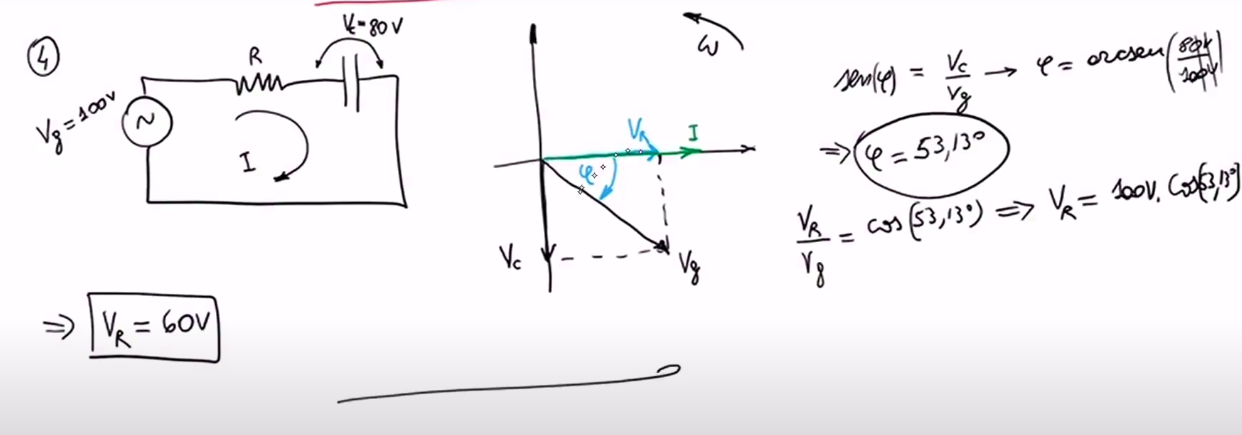 4
Vc=80V
R
Vg=100V
~
I
ω
VR
I
φ
Vc
Vg
sen(φ) = Vc/Vg → φ = arcsen(80V/100V)
⇒ φ = 53,13°
VR/Vg = cos(53,13°) ⇒ VR = 100V. Cos(53,13°)
⇒ VR = 60V